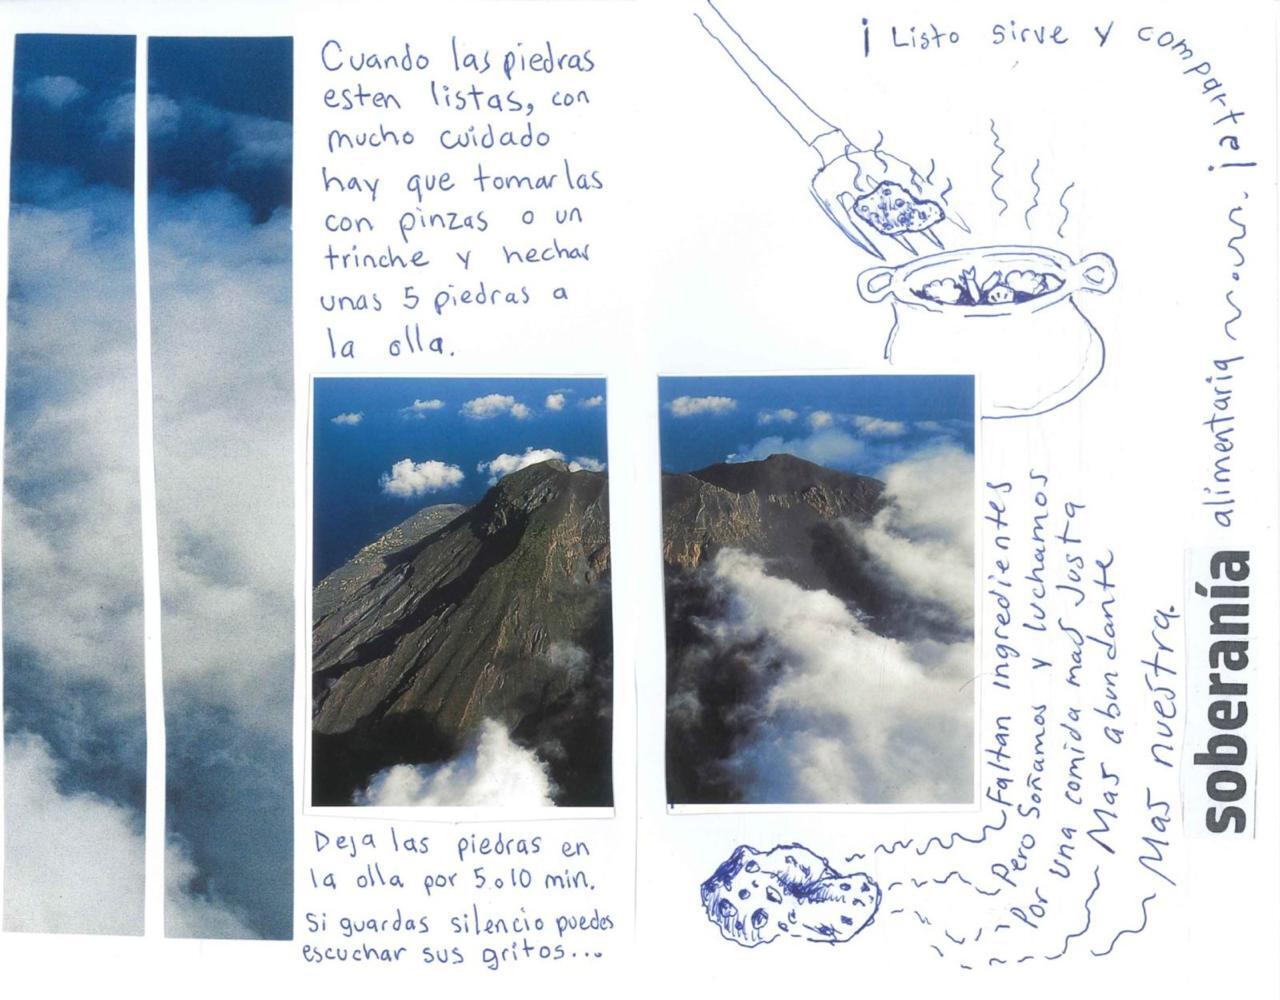 Cuando las piedras
esten listas, con
mucho cuidado
hay que tomarlas
con pinzas o un
trinche y hechar
unas 5 piedras a
la olla.
Deja las piedras en
la olla por 5 o 10 min.
Si guardas silencio puedes
escuchar sus gritos...
¡Listo sirve y comparta!
Faltan ingredientes
Pero Soñamos y luchamos
Por una comida mas Justa
Mas abundante
Mas nuestra.
soberanía alimentaria